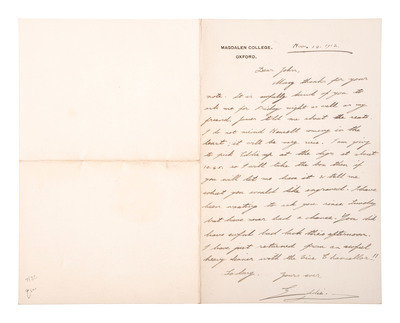 MAGDALEN COLLEGE,
OXFORD.
Nov. 10. 1912.
Dear John,
Many thanks for your
note. It is awfully kind of you to
ask me for Friday night as well as my
friend. Jones told me about the seats
I do not mind in the
least, it will be very nice. I am going
to pick up at the digs at about
10.45. so I will take the then if
you will let me have it & tell me
what you would like engraved. I have
been meaning to ask you since Tuesday
but have never had a chance. You did
have awful bad luck this afternoon.
I have just returned from an awful
heavy dinner with the Vice Chancellor!!
So long. Yours ever